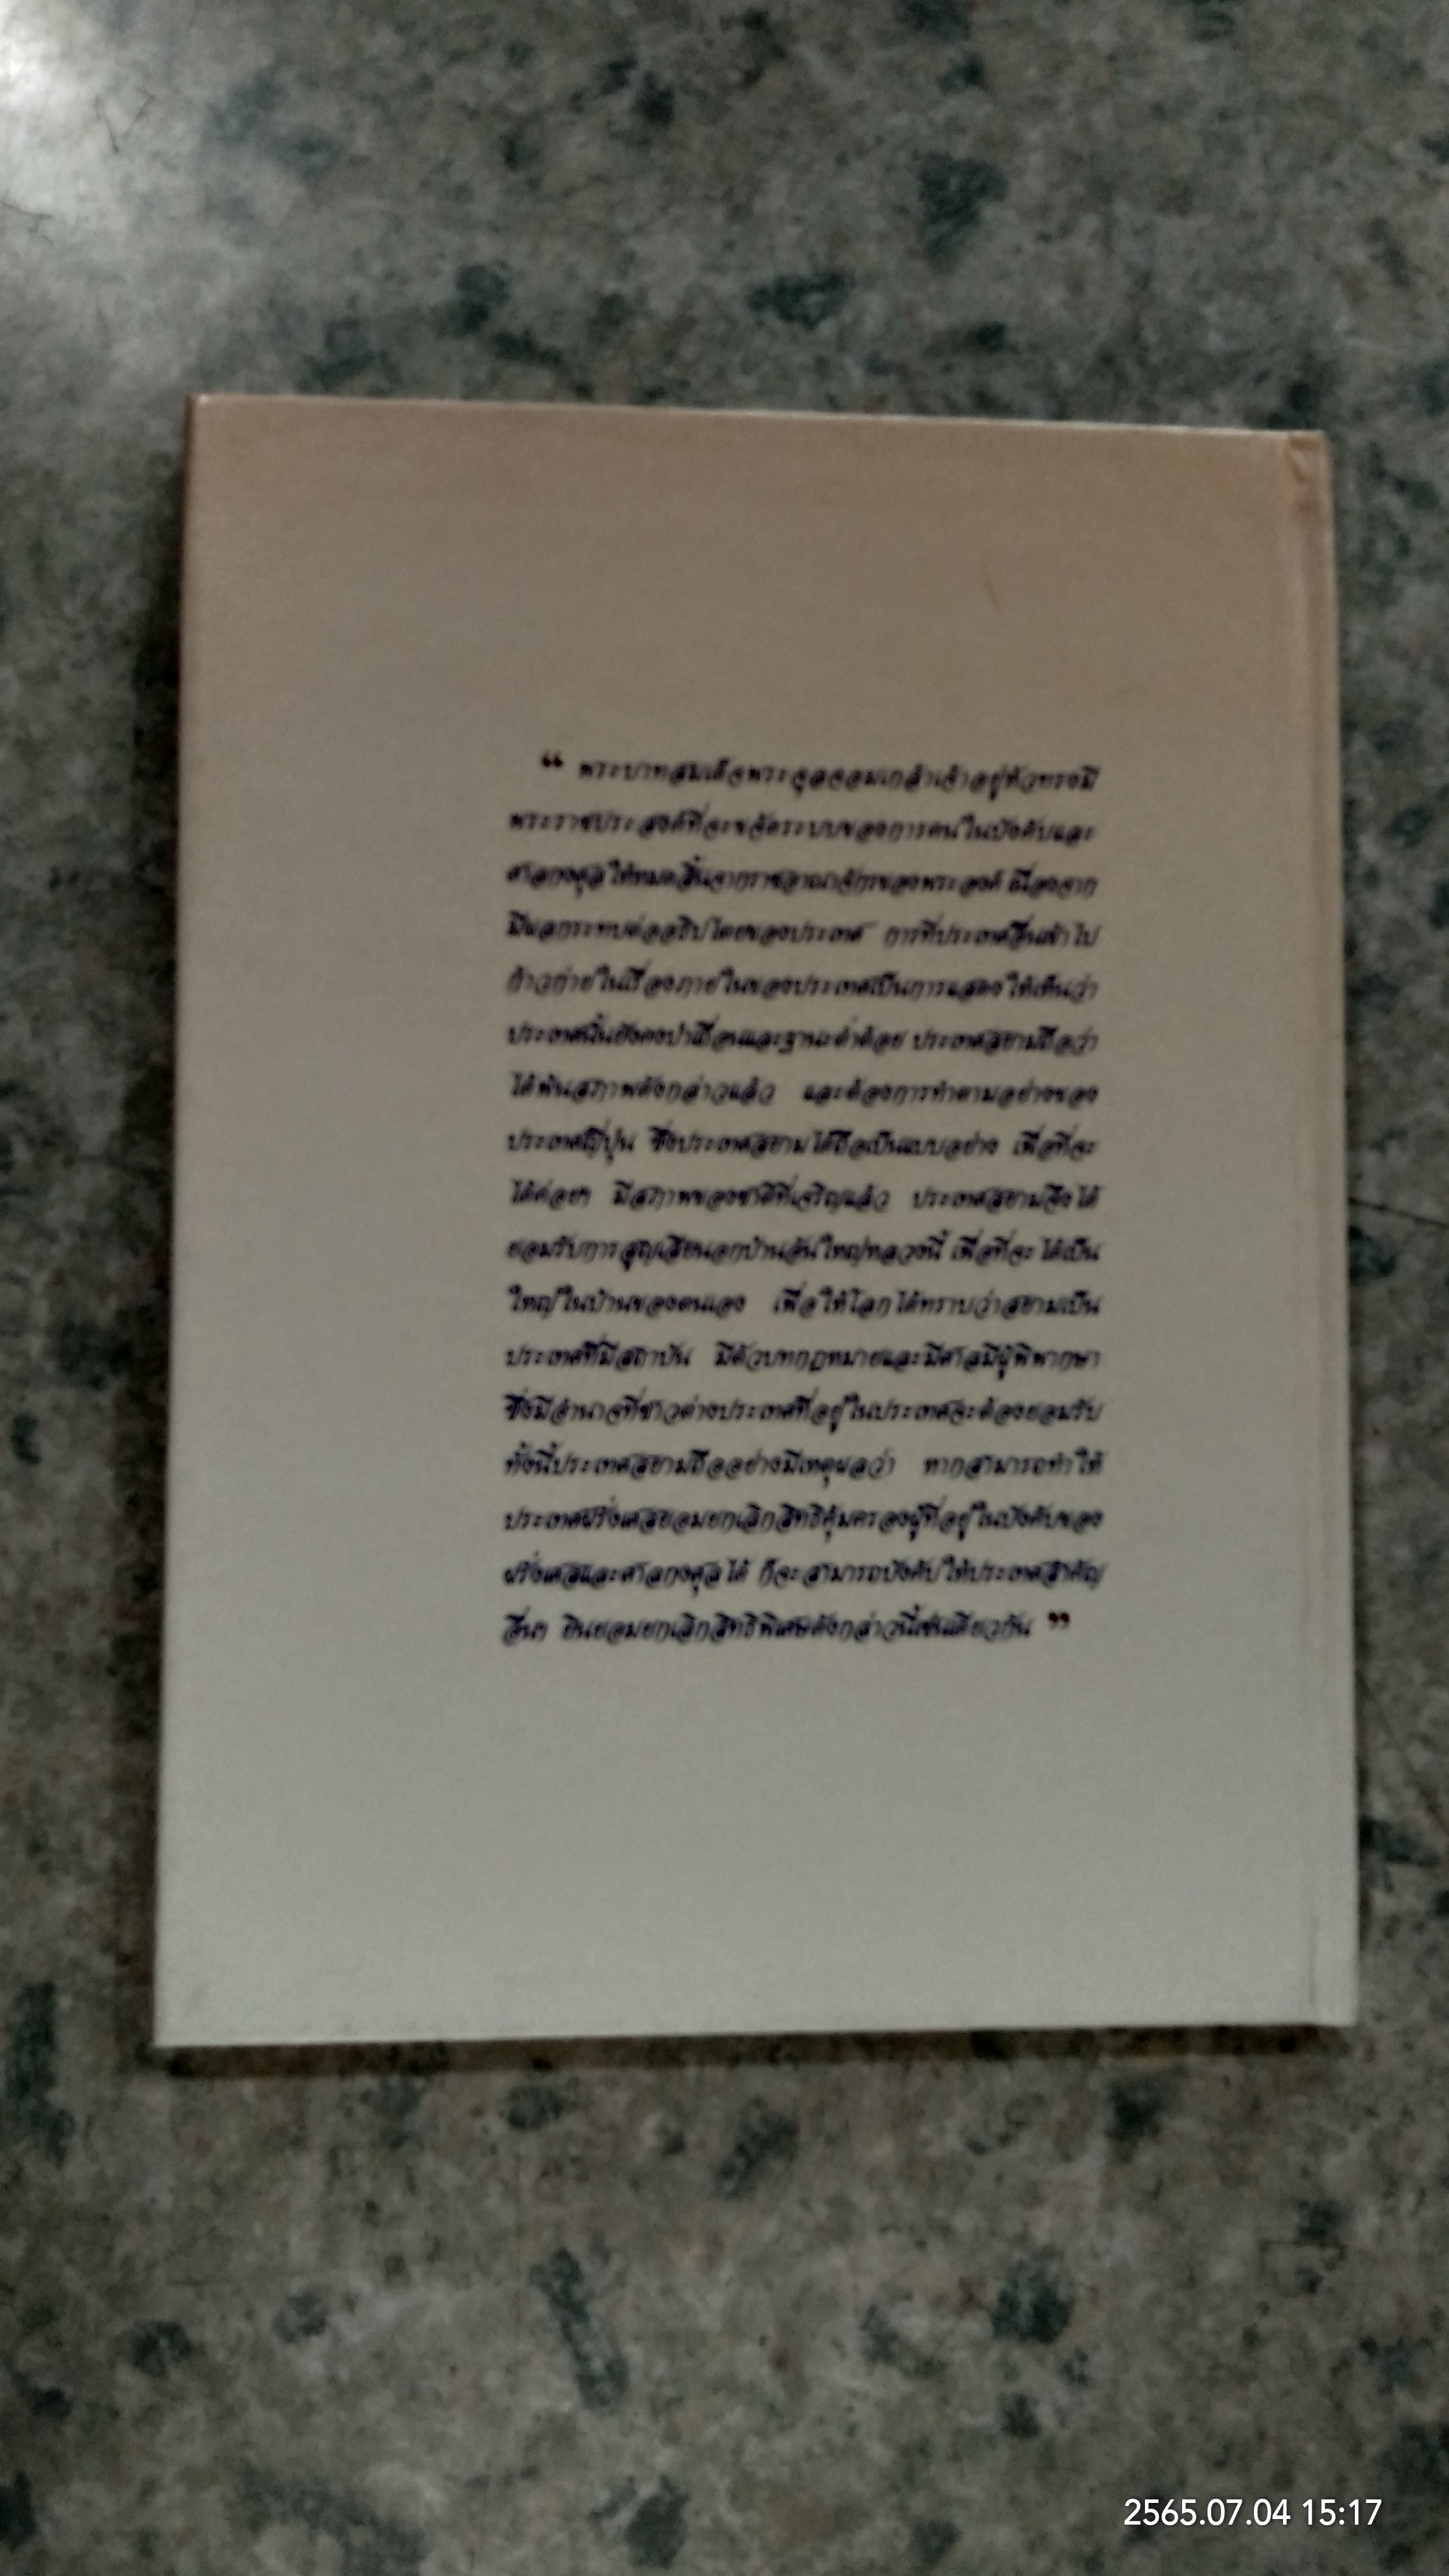 “ พระบาทสมเด็จพระจุลจอมเกล้าเจ้าอยู่หัวทรงมี
พระราชประสงค์ที่จะขจัดระบบของการคนในบังคับและ
ศาลกงศุลให้หมดสิ้นจากราชอาณาจักรของพระองค์ เนื่องจาก
มีผลกระทบต่ออธิปไตยของประเทศ การที่ประเทศอื่นเข้าไป
ก้าวก่ายในเรื่องภายในของประเทศเป็นการแสดงให้เห็นว่า
ประเทศนั้นยังคงป่าเถื่อนและฐานะต่ำต้อย ประเทศสยามถือว่า
ได้พ้นสภาพดังกล่าวแล้ว และต้องการทำตามอย่างของ
ประเทศญี่ปุ่น ซึ่งประเทศสยามได้ถือเป็นแบบอย่าง เพื่อที่จะ
ได้ค่อยๆ มีสภาพของชาติที่เจริญแล้ว ประเทศสยามจึงได้
ยอมรับการสูญเสียนอกบ้านอันใหญ่หลวงนี้ เพื่อที่จะได้เป็น
ใหญ่ในบ้านของตนเอง เพื่อให้โลกได้ทราบว่าสยามเป็น
ประเทศที่มีสถาบัน มีตัวบทกฎหมายและมีศาลมีผู้พิพากษา
ซึ่งมีอำนาจที่ชาวต่างประเทศที่อยู่ในประเทศจะต้องยอมรับ
ทั้งนี้ประเทศสยามถืออย่างมีเหตุผลว่า หากสามารถทำให้
ประเทศฝรั่งเศสยอมยกเลิกสิทธิคุ้มครองผู้ที่อยู่ในบังคับของ
ฝรั่งเศสและศาลกงศุลได้ ก็จะสามารถบังคับให้ประเทศสำคัญ
อื่นๆ ยินยอมยกเลิกสิทธิพิเศษดังกล่าวนี้เช่นเดียวกัน ”
2565.07.04 15:17